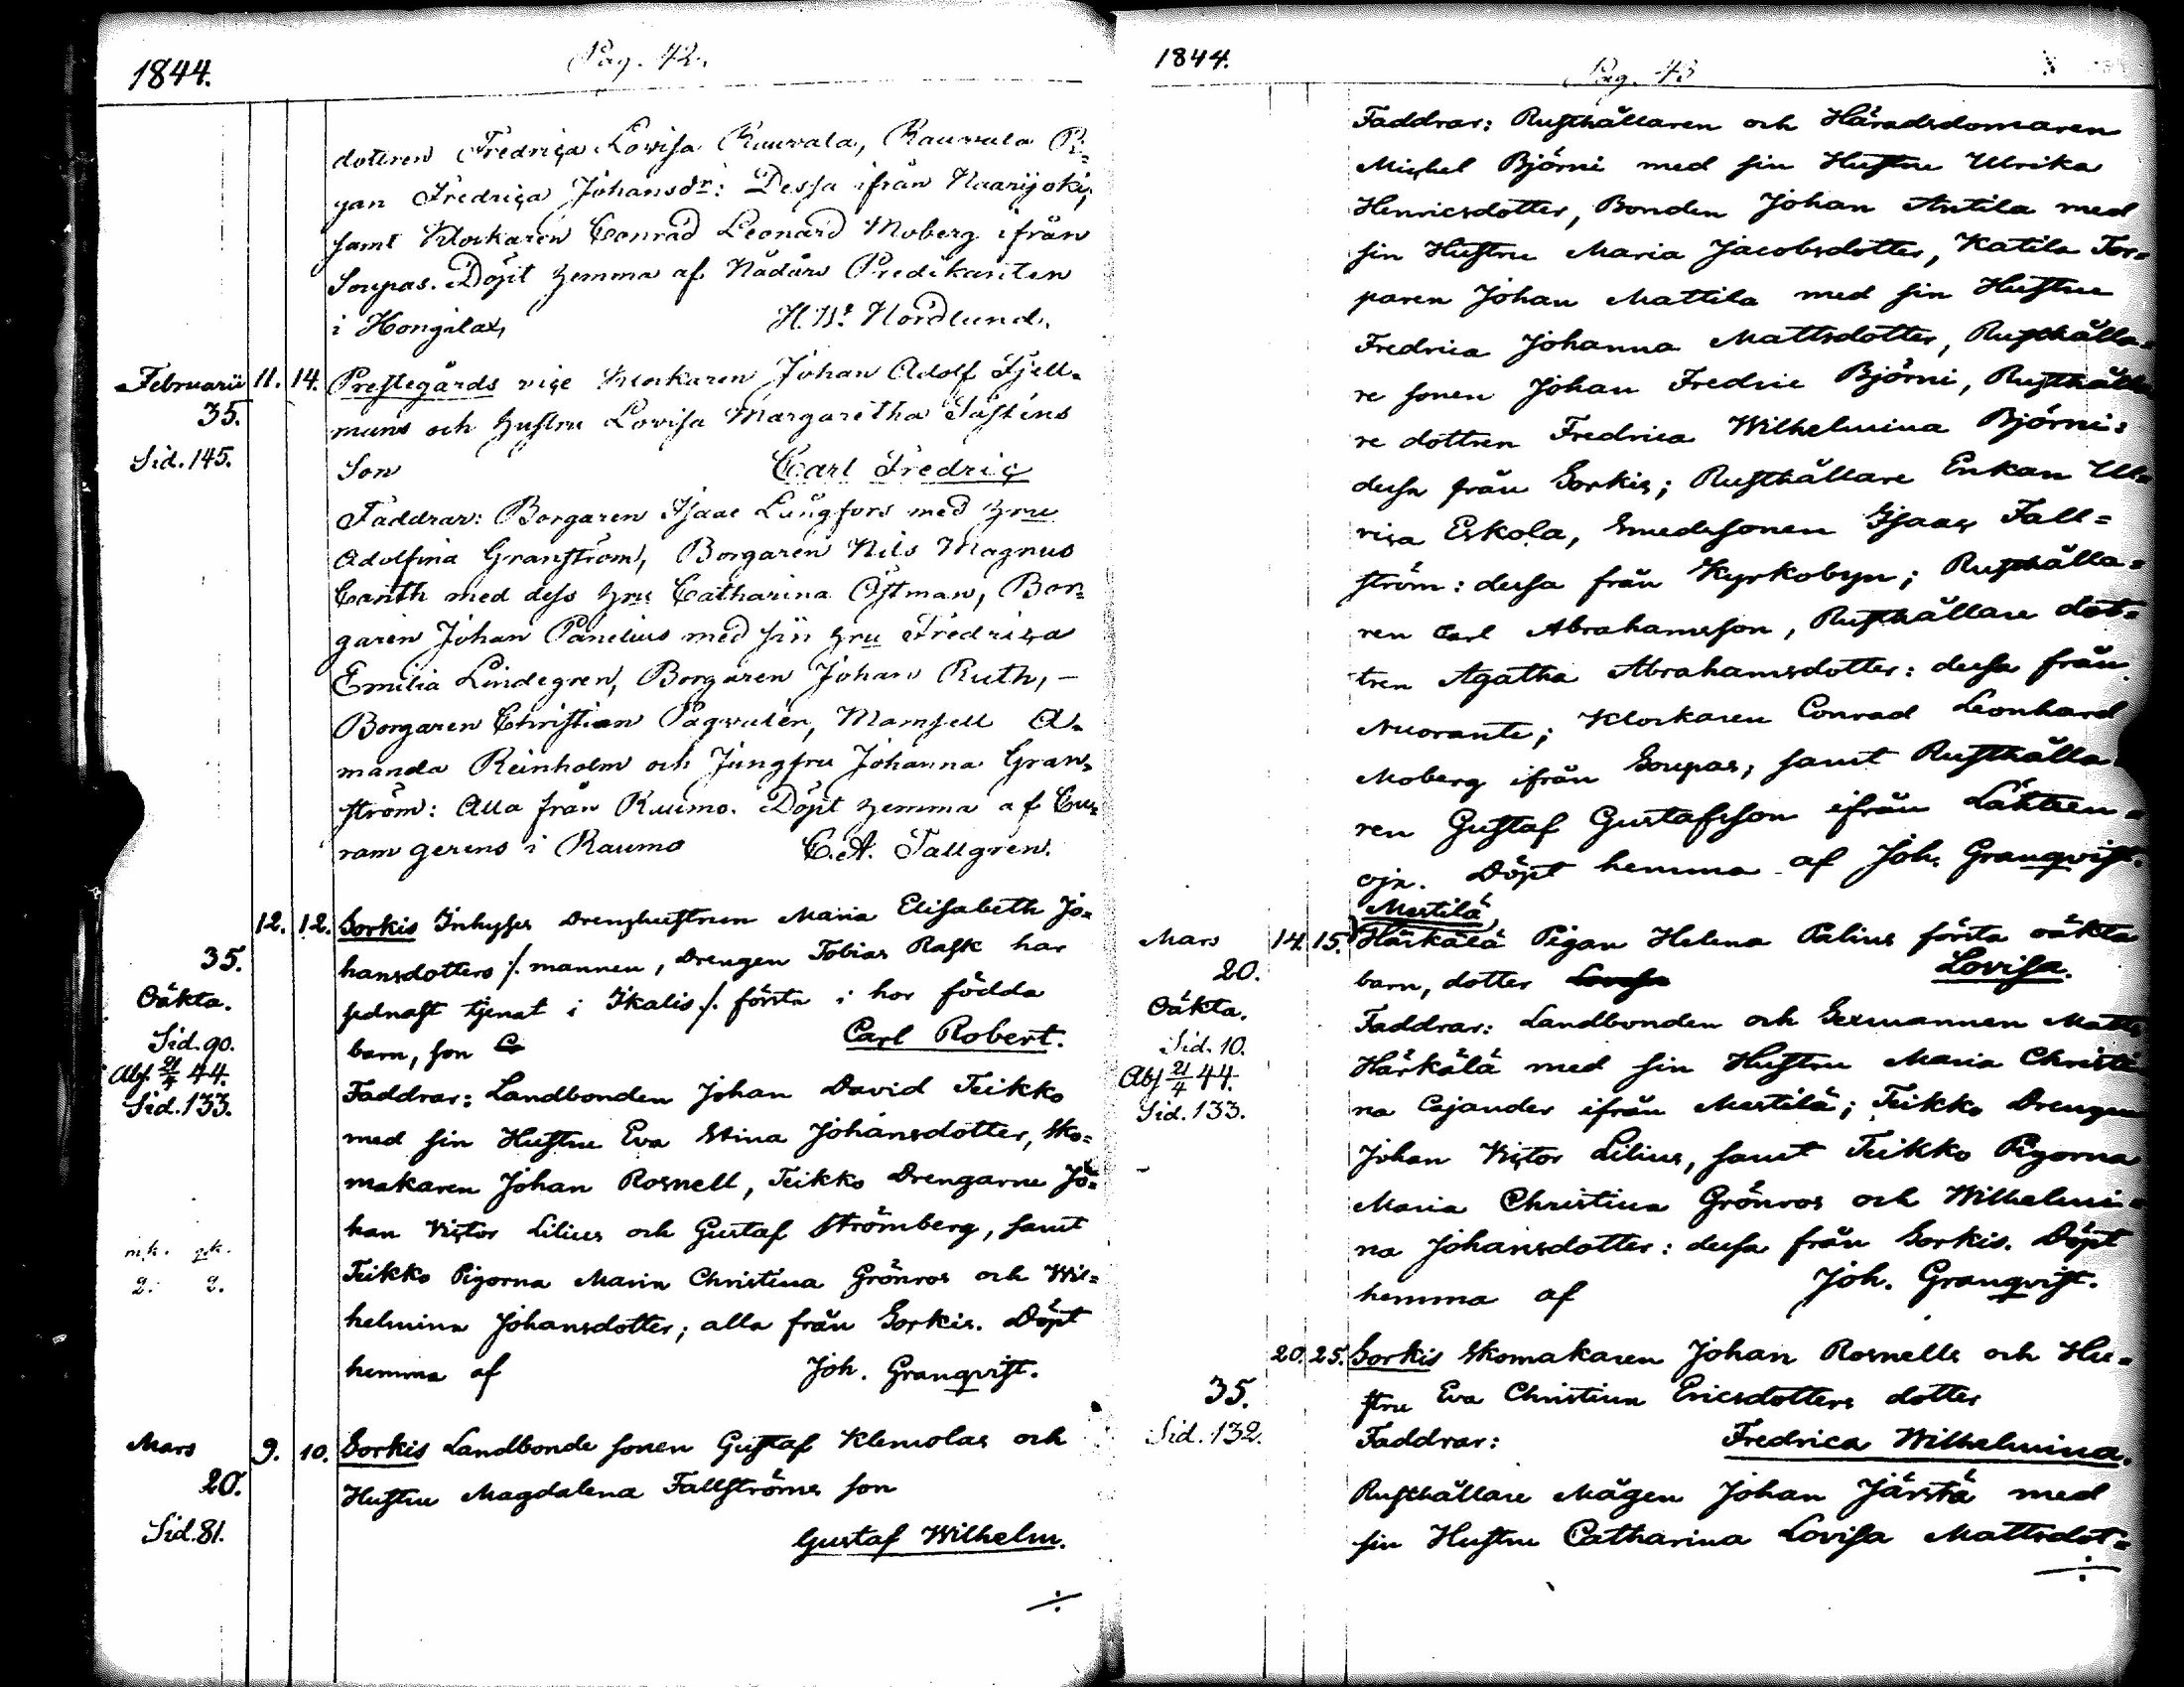 1844.
Pag. 42.
dottren Fredrica Lovisa Rauvala, Rauvala Pi=
gan Fredrica Johansdr: Dessa ifrån Naarijoki,
samt Klockaren Conrad Leonard Moberg ifrån
Soupas. Döpt hemma af Nådårs Predikanten
i Hongilax, H. Wr. Nordlund.
Februarii 11. 14. Prestegårds vice Klockaren Johan Adolf Fjell=
35.
mans och hustru Lovisa Margaretha Tastens
Sid. 145.
Son Carl Fredric
Faddrar: Borgaren Isaac Långfors med hru
Adolfina Granström, Borgaren Nils Magnus
Carith med dess hru Catharina Östman, Bor=
garen Johan Panelius med sin hru Fredrica
Emilia Lindegren, Borgaren Johan Ruth, –
Borgaren Christian Pagvalen, Mamsell A=
manda Reinholm och Jungfru Johanna Gran=
ström: Alla från Raumo. Döpt hemma af Cu=
ram gerens i Raumo C. A. Tallgren.
12. 12. Sorkis Inhyses Drenghustrun Maria Elisabeth Jo=
35.
hansdotters ./. mannen, Drengen Tobias Rask har
Oäkta.
sednast tjenat i Ikalis ./. första i hor födda
Sid. 90.
barn, son Carl Robert.
Abs. 21/4 44.
Sid. 133.
Faddrar: Landbonden Johan David Teikko
med sin Hustru Eva Stina Johansdotter, Sko=
makaren Johan Rosnell, Teikko Drengarne Jo=
han Victor Lilius och Gustaf Strömberg, samt
mk. 2.
Teikko Pigorna Maria Christina Grönros och Wil=
helmina Johansdotter; alla från Sorkis. Döpt
hemma af Joh. Granqvist.
Mars 9. 10. Sorkis Landbonde sonen Gustaf Klemolas och
20.
Hustru Magdalena Fallströms son
Sid. 81.
Gustaf Wilhelm.
÷
1844.
Pag. 43
Faddrar: Rusthållaren och Häradsdomaren
Michel Björni med sin Hustru Ulrika
Henricsdotter, Bonden Johan Antila med
sin Hustru Maria Jacobsdotter, Katila Tor=
paren Johan Mattila med sin Hustru
Fredrica Johanna Mattsdotter, Rusthålla=
re sonen Johan Fredric Björni, Rusthålla
re dottren Fredrica Wilhelmina Björni:
dessa från Sorkis; Rusthållare Enkan Ul=
rica Eskola, Smedssonen Isaac Fall=
ström: dessa från Kyrkobyn; Rusthålla=
ren Carl Abrahamsson, Rusthållare dot=
tren Agatha Abrahamsdotter: dessa från
Nuoranti; Klockaren Conrad Leonhard
Moberg ifrån Soupas; samt Rusthålla
ren Gustaf Gustafsson ifrån Lähteen=
oja. Döpt hemma af Joh. Granqvist.
Mestilä,
Mars 14. 15. Härkälä Pigan Helena Palius första oäkta
20.
barn, dotter Lovisa.
Oäkta.
Faddrar: Landbonden och Sexmannen Matts
Sid. 10.
Härkälä med sin Hustru Maria Christi
Abs 21/4 44.
na Cajander ifrån Mestilä; Teikko Drengen
Sid. 133.
Johan Victor Lilius, samt Teikko Pigorna
Maria Christina Grönros och Wilhelmi=
na Johansdotter: dessa från Sorkis. Döpt
hemma af Joh. Granqvist.
20. 25. Sorkis Skomakaren Johan Rosnells och Hu=
35.
stru Eva Christina Ericsdotters dotter
Sid. 132.
Faddrar: Fredrica Wilhelmina.
Rusthållare Mågen Johan Järstä med
sin Hustru Catharina Lovisa Mattsdot=
÷